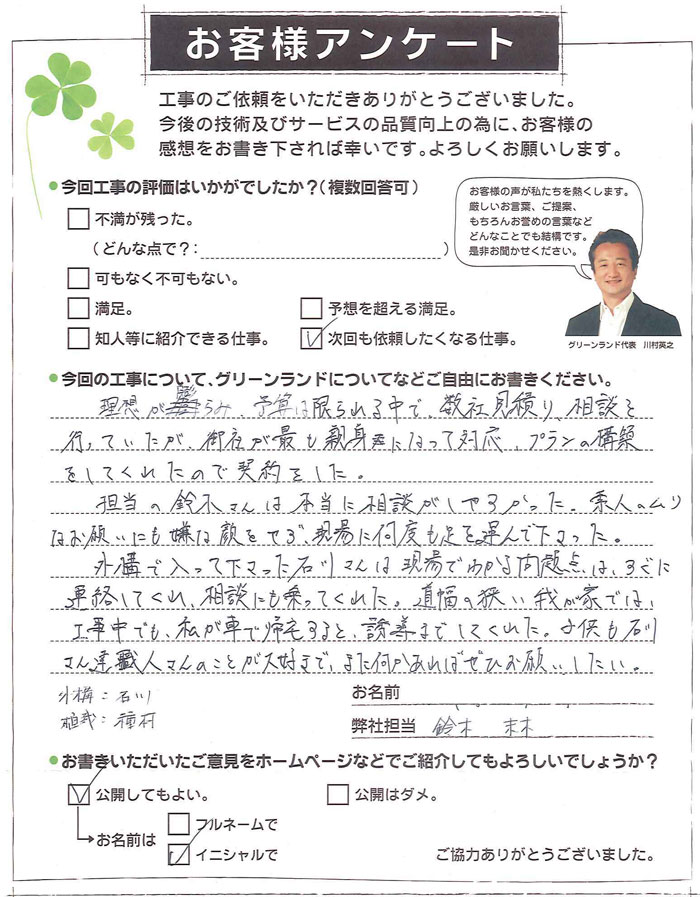 お客様アンケート
工事のご依頼をいただきありがとうございました。
今後の技術及びサービスの品質向上の為に、お客様の
感想をお書き下されば幸いです。よろしくお願いします。
今回工事の評価はいかがでしたか？(複数回答可)
不満が残った。
(どんな点で？: )
可もなく不可もない。
満足。
予想を超える満足。
知人等に紹介できる仕事。
次回も依頼したくなる仕事。
お客様の声が私たちを熱くします。
厳しいお言葉、ご提案、
もちろんお誉めの言葉など
どんなことでも結構です。
是非お聞かせください。
グリーンランド代表 川村英之
今回の工事について、グリーンランドについてなどご自由にお書きください。
理想が膨らみ、予算は限られる中で、数社見積り、相談を
行っていたが、御社が最も親身になって対応、プランの構築
をしてくれたので契約をした。
担当の鈴木さんは本当に相談がしやすかった。素人のムリ
なお願いにも嫌な顔をせず、現場に何度も足を運んで下さった。
外構で入って下さった石川さんは現場でわかる問題点は、すぐに
連絡してくれ、相談にも乗ってくれた。道幅の狭い我が家では、
工事中でも、私が車で帰宅すると、誘導までしてくれた。子供も石川
さん達職人さんのことが大好きで、また何かあればぜひお願いしたい。
外構：石川
植栽：種村
お名前
弊社担当 鈴木
お書きいただいたご意見をホームページなどでご紹介してもよろしいでしょうか？
公開してもよい。
公開はダメ。
お名前は
フルネームで
イニシャルで
ご協力ありがとうございました。